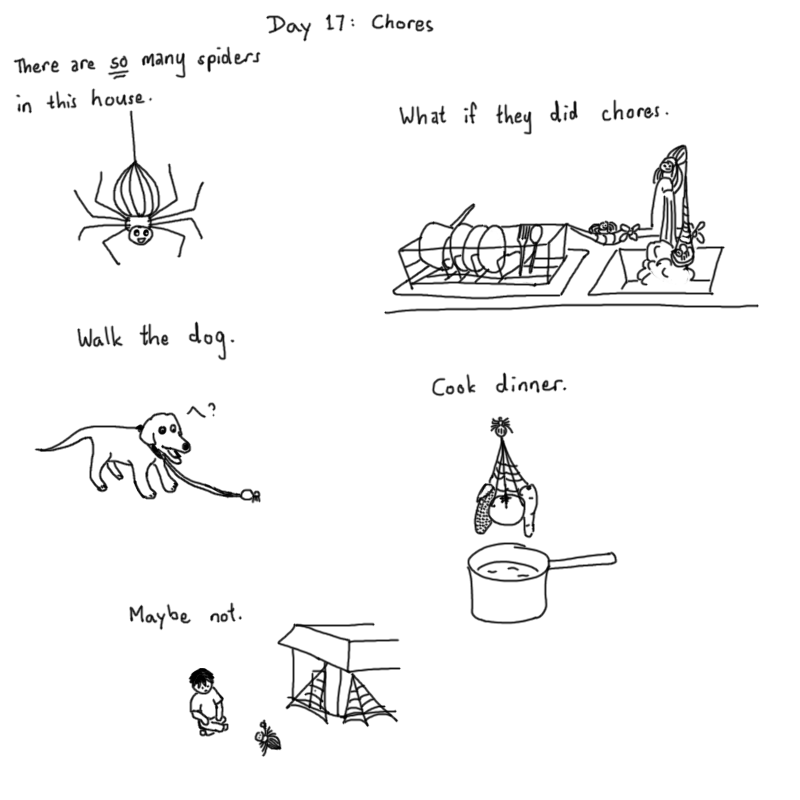 Day 17: Chores
There are so many spiders
in this house.
What if they did chores.
Walk the dog.
^?
Cook dinner.
Maybe not.